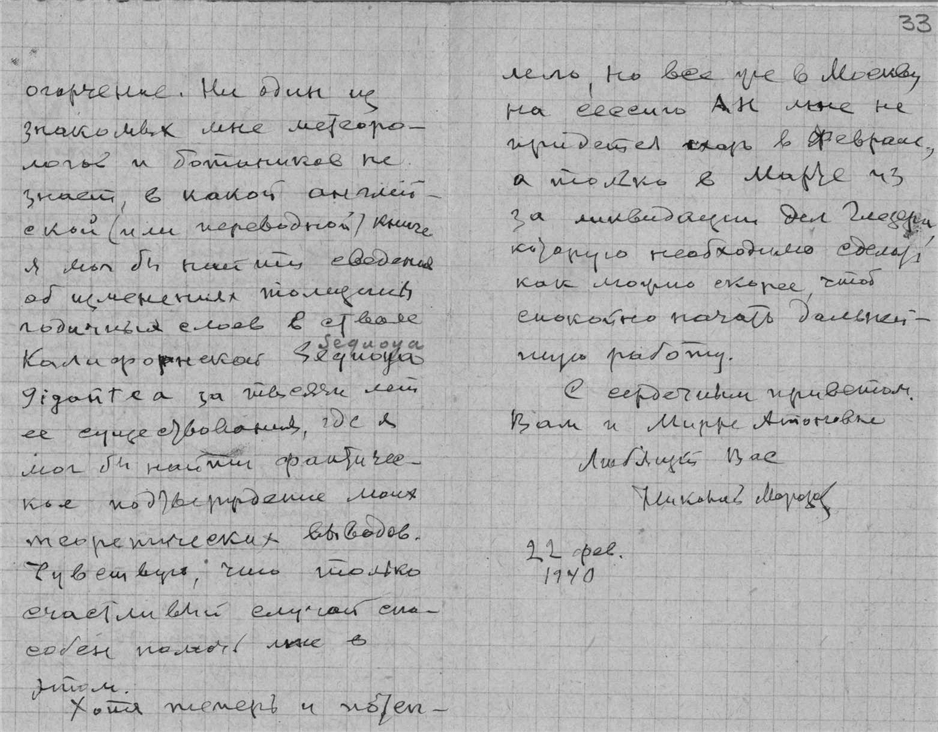 33
огорчение. Ни один из
знакомых мне метеоро-
логов и ботаников не
знает, в какой англий-
ской (или переводной) книге
я мог бы найти сведения
об изменениях толщины
годичных слоев в стволе
Sequoya
Калифорнской Sequoya
gigantea за тысячи лет
ее существования, где я
мог бы найти фактичес-
кое подтверждение моих
теоретических выводов.
Чувствую, что только
счастливый случай спо-
собен помочь мне в
этом.
Хотя теперь и потеп-
лело, но все же в Москву
на сессию АН мне не
придется в Феврале,
а только в Марте из
за ликвидации дел
которую необходимо сделать
как можно скорее, чтоб
спокойно начать дальней-
шую работу.
С сердечным приветом.
Вам и Антоновне
Любящий Вас
Николай Морозов
22 фев.
1940